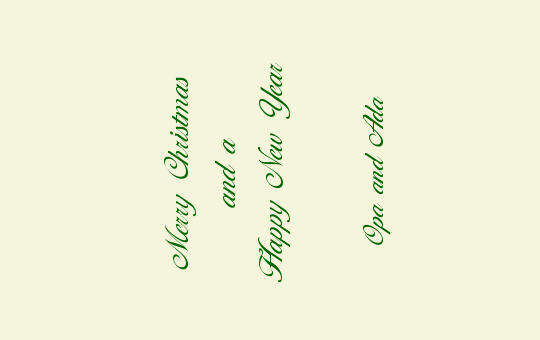 Merry Christmas
and a
Happy New Year
Opa and Ada